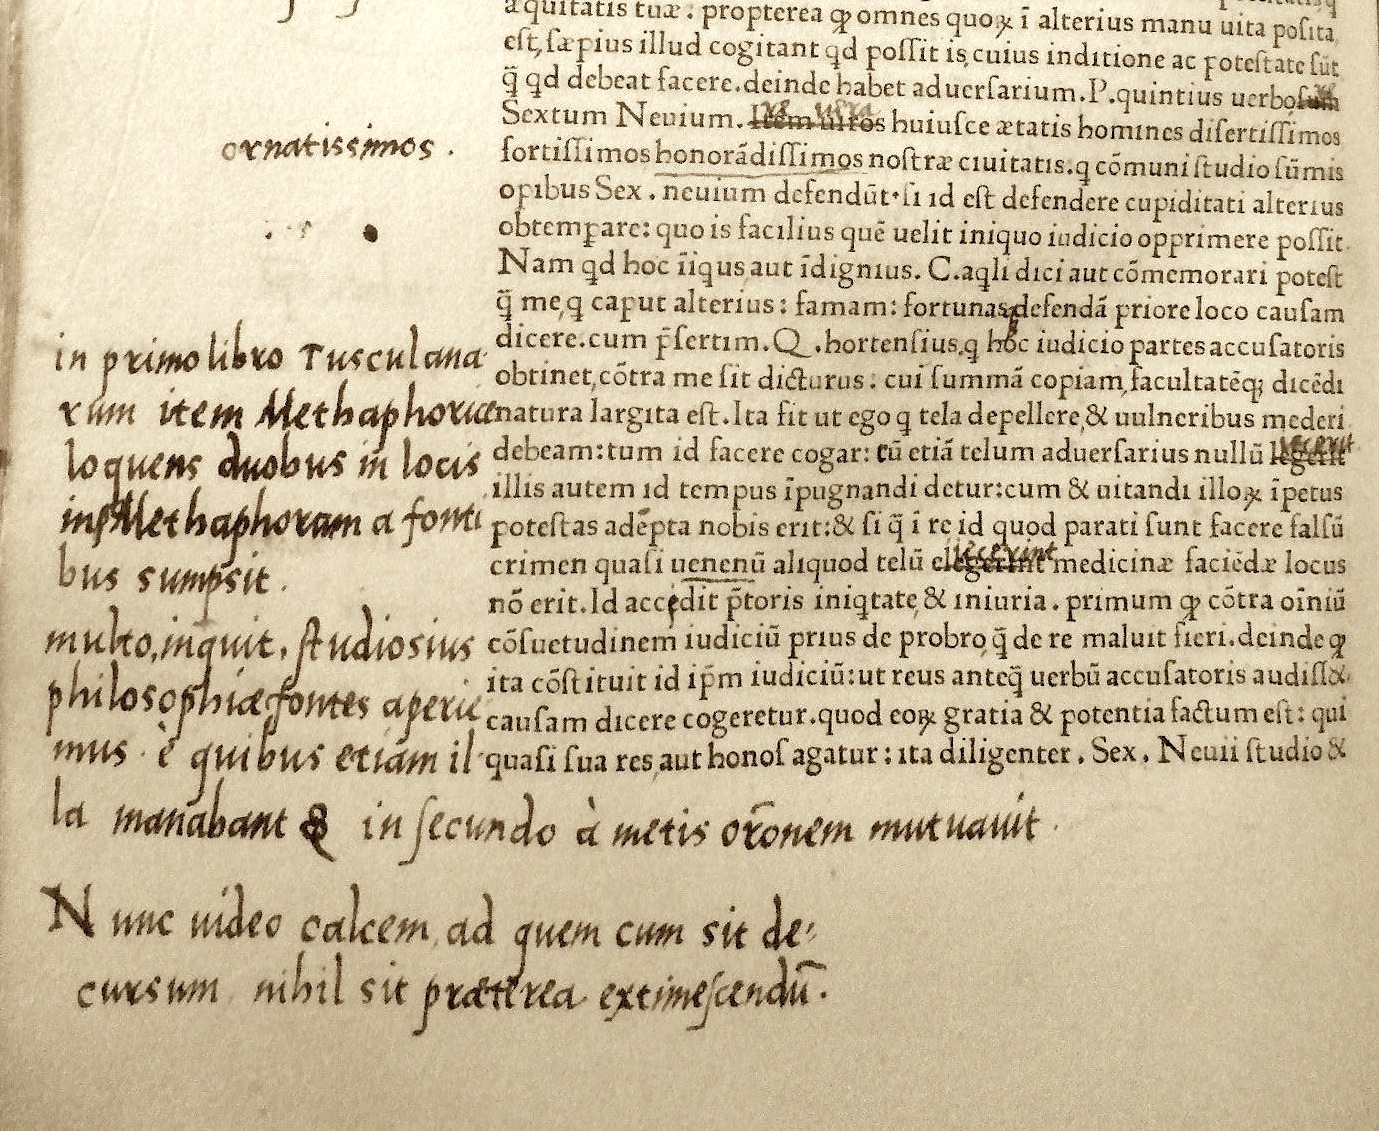 æquitatis tuæ: propterea ꝙ omnes quoꝝ ī alterius manu uita posita
est, sæpius illud cogitant qd possit is, cuius inditione ac potestate sūt
q̄ qd debeat facere. deinde habet aduersarium. P. quintius uerbo
Sextum Neuium. huiusce ætatis homines disertissimos
fortissimos honorādissimos nostræ ciuitatis. q cōmuni studio sūmis
opibus Sex. neuium defendūt. si id est defendere cupiditati alterius
obtemꝑare: quo is facilius quē uelit iniquo iudicio opprimere possit.
Nam qd hoc īiqus aut īdignius. C. aqli dici aut cōmemorari potest
q̄ me, q caput alterius: famam: fortunasq defendā priore loco causam
dicere. cum p̄sertim. Q. hortensius, q hoc iudicio partes accusatoris
obtinet, cōtra me sit dicturus: cui summā copiam, facultatēq; dicēdi
natura largita est. Ita fit ut ego q tela depellere, & uulneribus mederi
debeam: tum id facere cogar: cū etiā telum aduersarius nullū iecerit
illis autem id tempus īpugnandi detur: cum & uitandi illoꝝ īpetus
potestas adēpta nobis erit: & si q̄ ī re id quod parati sunt facere falsū
crimen quasi uenenū aliquod telū iecerint medicinæ faciēdæ locus
nō erit. Id accedit p̄toris iniqtate, & iniuria. primum ꝙ cōtra oīniū
cōsuetudinem iudiciū prius de probro, q̄ de re maluit fieri. deinde ꝙ
ita cōstituit id ip̄m iudiciū: ut reus anteq̄ uerbū accusatoris audiss&
causam dicere cogeretur. quod eoꝝ gratia & potentia factum est: qui
quasi sua res, aut honos agatur: ita diligenter. Sex. Neuii studio &
ornatissimos.
in primo libro Tusculana
rum item Methaphorice
loquens duobus in locis
Methaphoram a fonti
bus sumpsit.
multo, inquit, studiosius
philosophiæ fontes aperie
mus è quibus etiam il
la manabant & in secundo à metis or̄onem mutuauit.
Nunc uideo calcem, ad quem cum sit de:
cursum nihil sit præterea extimescendū.